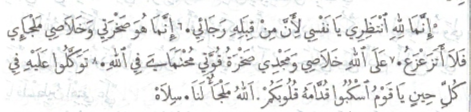 ٥ إِنَّمَا لِلَّهِ ٱنْتَظِرِي يَا نَفْسِي لِأَنَّ مِنْ قِبَلِهِ رَجَائِي. ٦ إِنَّمَا هُوَ صَخْرَتِي وَخَلَاصِي مَلْجَإِي
فَلَا أَتَزَعْزَعُ. ٧ عَلَى ٱللهِ خَلَاصِي وَمَجْدِي صَخْرَةُ قُوَّتِي مُحْتَمَايَ فِي ٱللهِ. ٨ تَوَكَّلُوا عَلَيْهِ فِي
كُلِّ حِينٍ يَا قَوْمُ ٱسْكُبُوا قُدَّامَهُ قُلُوبَكُمْ. ٱللهُ مَلْجَأٌ لَنَا. سِلَاهْ